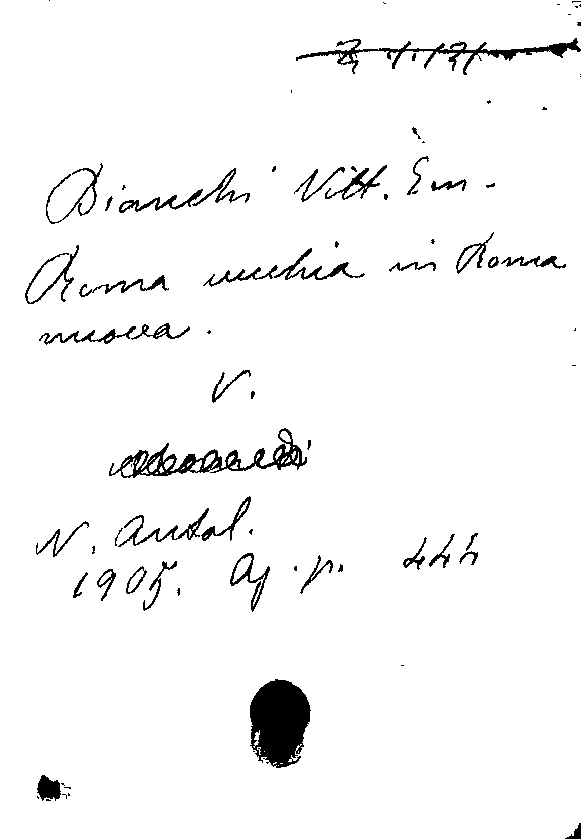 Bianchi Vitt. Em-
Roma vecchia in Roma
nuova.
V.
N. Antol.
1905. Ag. p. 444